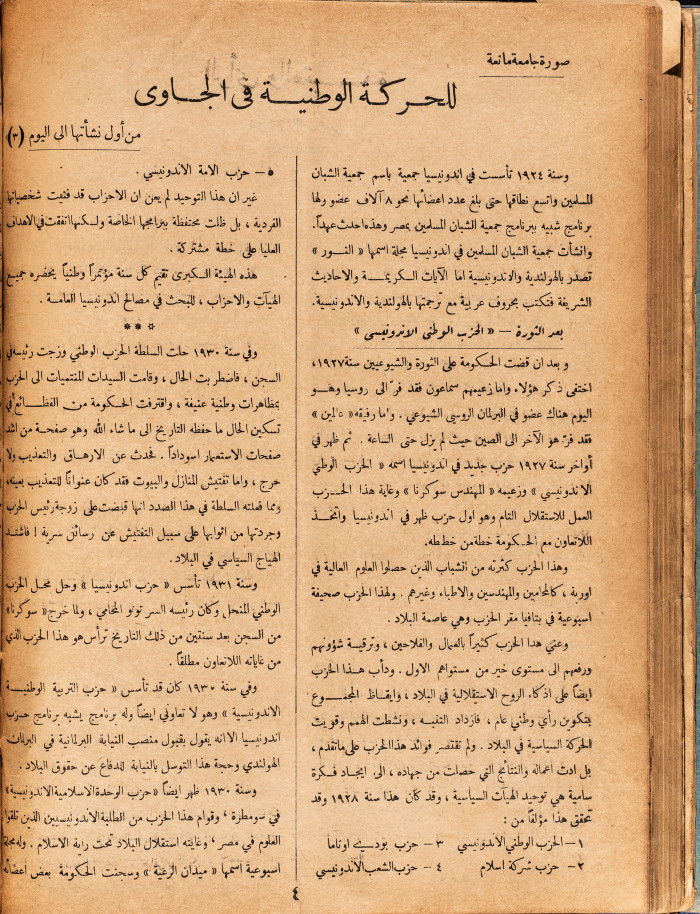 صورة جامعة مانعة
للحركة الوطنية فى الجاوى
من أول نشأتها الى اليوم (٣)
وسنة ١٩٢٤ تأسست في اندونيسيا جمعية باسم جمعية الشبان
المسلمين واتسع نطاقها حتى بلغ عدد اعضائها نحو ٨ آلاف عضو ولها
برنامج شبيه ببرنامج جمعية الشبان المسلمين بمصر وهذه احدث عهداً.
وانشأت جمعية الشبان المسلمين في اندونيسيا مجلة اسمها « النور »
تصدر بالهولندية والاندونيسية اما الآيات الكريمة والاحاديث
الشريفة فتكتب بحروف عربية مع ترجمتها بالهولندية والاندونيسية.
بعد الثورة — « الحزب الوطنى الاندونيسى »
و بعد ان قضت الحكومة على الثورة والشيوعيين سنة ١٩٢٧،
اختفى ذكر هؤلاء واما زعيمهم سماعون فقد فرّ الى روسيا وهو
اليوم هناك عضو في البرلمان الروسي الشيوعي . واما رفيقه « عالمين »
فقد فرّ هو الآخر الى الصين حيث لم يزل حتى الساعة . ثم ظهر في
أواخر سنة ١٩٢٧ حزب جديد في اندونيسيا اسمه « الحزب الوطني
الاندونيسي » وزعيمه « المهندس سوكرنا » وغاية هذا الحزب
العمل للاستقلال التام وهو اول حزب ظهر في اندونيسيا واتخذ
اللاتعاون مع الحكومة خطة من خططه.
وهذا الحزب كثرته من الشباب الذين حصلوا العلوم العالية في
اوربة ، كالمحامين والمهندسين والاطباء وغيرهم . ولهذا الحزب صحيفة
اسبوعية في بتافيا مقر الحزب وهي عاصمة البلاد .
وعني هذا الحزب كثيراً بالعمال والفلاحين ، وترقية شؤونهم
ورفعهم الى مستوى خير من مستواهم الاول . ودأب هذا الحزب
ايضاً على اذكاء الروح الاستقلالية في البلاد ، وايقاظ المجموع
بتكوين رأي وطني عام ، فازداد التنبه ، ونشطت الهمم وقويت
الحركة السياسية في البلاد . ولم تقتصر فوائد هذا الحزب على ماتقدم ،
بل ادت اعماله والنتائج التي حصلت من جهاده ، الى ايجاد فكرة
سامية هي توحيد الهيآت السياسية ، وقد كان هذا سنة ١٩٢٨ وقد
تحقق هذا مؤلفاً من :
١— الحزب الوطني الاندونيسي ٣— حزب بودي اوتاما
٢— حزب شركة اسلام ٤— حزب الشعب الاندونيسي
٥— حزب الامة الاندونيسي .
غير ان هذا التوحيد لم يعن ان الاحزاب قد فنيت شخصياتها
الفردية ، بل ظلت محتفظة ببرامجها الخاصة ولكنها اتفقت في الاهداف
العليا على خطة مشتركة .
هذه الهيئة الكبرى تقيم كل سنة مؤتمراً وطنياً يحضره جميع
الهيآت والاحزاب ، للبحث في مصالح اندونيسيا العامة .
* * *
وفي سنة ١٩٣٠ حلت السلطة الحزب الوطني وزجت رئيسه في
السجن ، فاضطربت الحال ، وقامت السيدات المنتميات الى الحزب
بمظاهرات وطنية عنيفة ، واقترفت الحكومة من الفظائع في
تسكين الحال ما حفظه التاريخ الى ما شاء الله وهو صفحة من اشد
صفحات الاستعمار اسوداداً . فحدث عن الارهاق والتعذيب ولا
حرج ، واما تفتيش المنازل والبيوت فقد كان عنواناً للتعذيب بعينه،
ومما فعلته السلطة في هذا الصدد انها قبضت على زوجة رئيس الحزب
وجردتها من اثوابها على سبيل التفتيش عن رسائل سرية ! فاشتد
الهياج السياسي في البلاد.
وسنة ١٩٣١ تأسس « حزب اندونيسيا » وحل محل الحزب
الوطني المنحل وكان رئيسه السر تونو المحامي ، ولما خرج « سوكرنا »
من السجن بعد سنتين من ذلك التاريخ ترأس هو هذا الحزب الذي
من غاياته اللاتعاون مطلقاً .
وفي سنة ١٩٣٠ كان قد تأسس « حزب التربية الوطنية
الاندونيسية » وهو لا تعاوني ايضاً وله برنامج يشبه برنامج حزب
اندونيسيا الا انه يقول بقبول منصب النيابة البرلمانية في البرلمان
الهولندي وحجة هذا التوسل بالنيابة للدفاع عن حقوق البلاد .
وسنة ١٩٣٠ ظهر ايضاً « حزب الوحدة الاسلامية الاندونيسية »
في سومطرة ، وقوام هذا الحزب من الطلبة الاندونيسيين الذين تلقوا
العلوم في مصر ، وغايته استقلال البلاد تحت راية الاسلام . وله مجلة
اسبوعية اسمها « ميدان الرعية » وسجنت الحكومة بعض اعضائه
٤